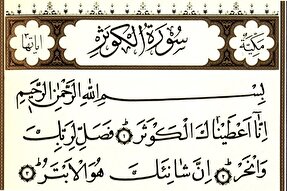 مكية سورة الكوثر آياتها ٣
بسم الله الرحمن الرحيم
إِنَّا أَعْطَيْنَاكَ الْكَوْثَرَ ١ فَصَلِّ لِرَبِّكَ
وَانْحَرْ ٢ إِنَّ شَانِئَكَ هُوَ الْأَبْتَرُ ٣